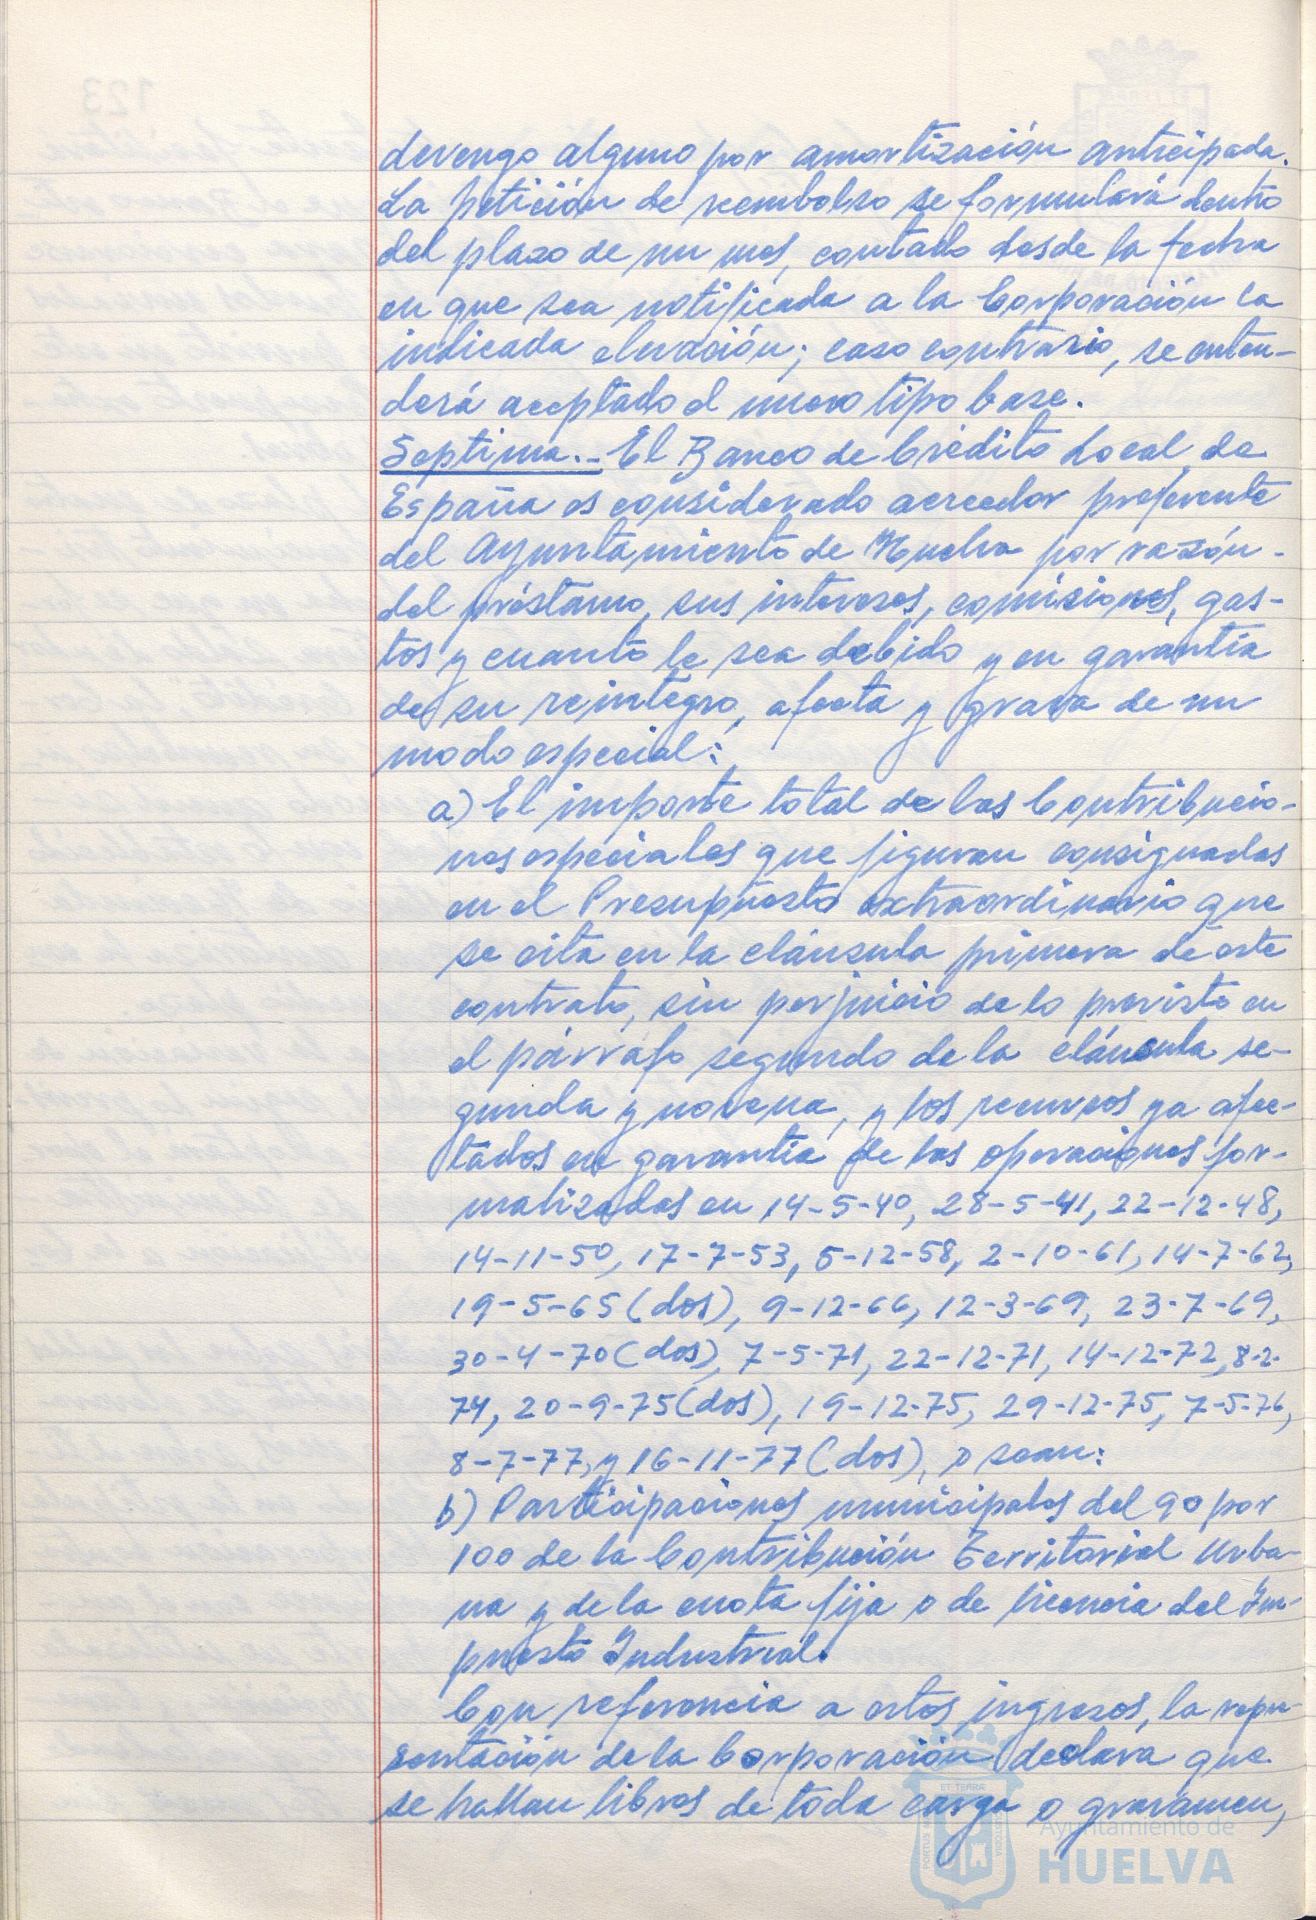 devengo alguno por amortización anticipada.
La petición de reembolso se formulará dentro
del plazo de un mes, contado desde la fecha
en que sea notificada a la Corporación la
indicada elevación; caso contrario, se enten-
derá aceptado el nuevo tipo base.
Septima.- El Banco de Crédito Local de
España es considerado acreedor preferente
del Ayuntamiento de Huelva por razón
del préstamo, sus intereses, comisiones, gas-
tos y cuanto le sea debido y en garantía
de su reintegro, afecta y grava de un
modo especial:
a) El importe total de las Contribucio-
nes especiales que figuran consignadas
en el Presupuesto extraordinario que
se cita en la cláusula primera de este
contrato, sin perjuicio de lo previsto en
el párrafo segundo de la cláusula se-
gunda y novena, y los recursos ya afec-
tados en garantía de las operaciones for-
malizadas en 14-5-40, 28-5-41, 22-12-48,
14-11-50, 17-7-53, 5-12-58, 2-10-61, 14-7-62,
19-5-65 (dos), 9-12-66, 12-3-69, 23-7-69,
30-4-70 (dos), 7-5-71, 22-12-71, 14-12-72, 8-2-
74, 20-9-75 (dos), 19-12-75, 29-12-75, 7-5-76,
8-7-77, y 16-11-77 (dos), o sean:
b) Participaciones municipales del 90 por
100 de la Contribución Territorial Urba-
na y de la cuota fija o de licencia del Im-
puesto Industrial.
Con referencia a estos ingresos, la repre-
sentación de la Corporación declara que
se hallan libres de toda carga o gravamen,
Ayuntamiento de
HUELVA
123